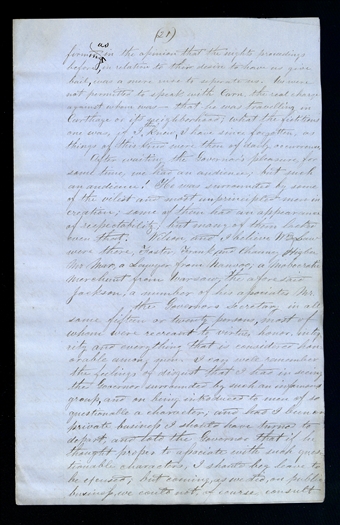 (21)
as
firming in the opinion that the nights proceedings
before, in relation to their desire to have us give
bail, was a mere ruse to separate us. We were
not permitted to speak with Carn, the real charge
against whom was — that he was travelling in
Carthage or its neighborhood; what the fictitious
one was, if I knew, I have since forgotten, as
things of this kind were then of daily occurrence.
After waiting the Governor's pleasure, for
some time, we had an audience; but such
an audience! He was surrounded by some
of the vilest and most unprincipled men in
creation; some of them had an appearance
of respectability, but many of them lacked
even that. Wilson, and I believe
were there, Foster, Frank and Chauncey Higbee
Mr. Mar, a lawyer from Nauvoo, a mobocratic
merchant from Warsaw, the aforesaid
Jackson, a number of his associates Mr.
the Governor's secretary, in all
some fifteen or twenty persons, most of
whom were recreant to virtue, honor, integ
rity, and everything that is considered honor
able among men. I can well remember
the feelings of disgust that I had in seeing
the Governor surrounded by such an infamous
group, and on being introduced to men of so
questionable a character; and had I been on
private business I should have turned to
depart, and told the Governor that if he
thought proper to associate with such ques
tionable characters, I should beg leave to
be excused; but coming, as we did, on public
business, we could not, of course, consult